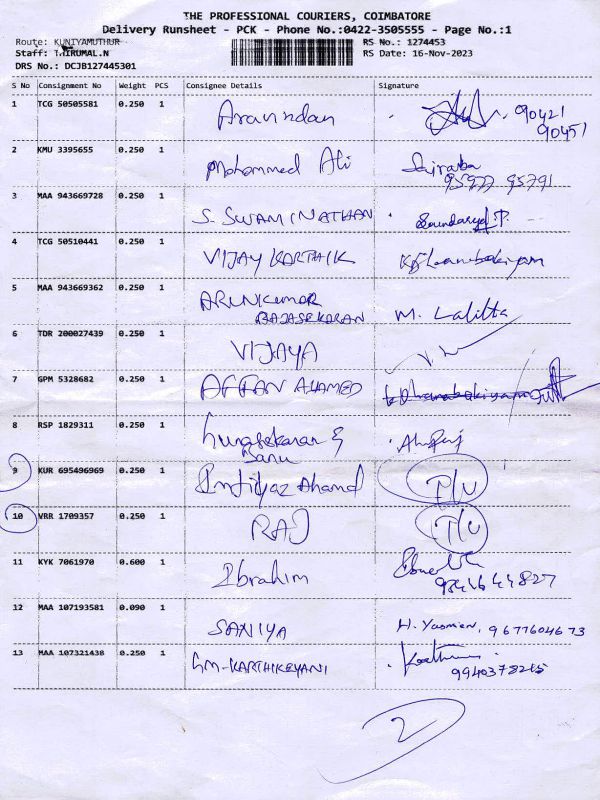 THE PROFESSIONAL COURIERS, COIMBATORE
Delivery Runsheet - PCK - Phone No.:0422-3505555 - Page No.:1
Route: KUNIYAMUTHUR RS No.: 1274453
Staff: THIRUMAL.N RS Date: 16-Nov-2023
DRS No.: DCJB127445301
S No Consignment No Weight PCS Consignee Details Signature
1 TCG 50505581 0.250 1 Aravindan 90421
90451
2 KMU 3395655 0.250 1 Mohammed Ali
95977 95791
3 MAA 943669728 0.250 1 S. SWAMINATHAN Soundarya P.
4 TCG 50510441 0.250 1 VIJAY KARTHIK
5 MAA 943669362 0.250 1 ARUNKUMAR
RAJASEKARAN M. Lalitta
6 TDR 200027439 0.250 1 VIJAYA
7 GPM 5328682 0.250 1 AFFAN AHAMED
8 RSP 1829311 0.250 1 Gunasekaran &
Banu
9 KUR 695496969 0.250 1 Imtiyaz Ahamad
10 VRR 1709357 0.250 1 RAJ
11 KYK 7061970 0.600 1 Ibrahim
9841644827
12 MAA 107193581 0.090 1 SANIYA H. Yasmien, 9677604673
13 MAA 107321438 0.250 1 GM. KARTHIKEYANI
9940378215
2